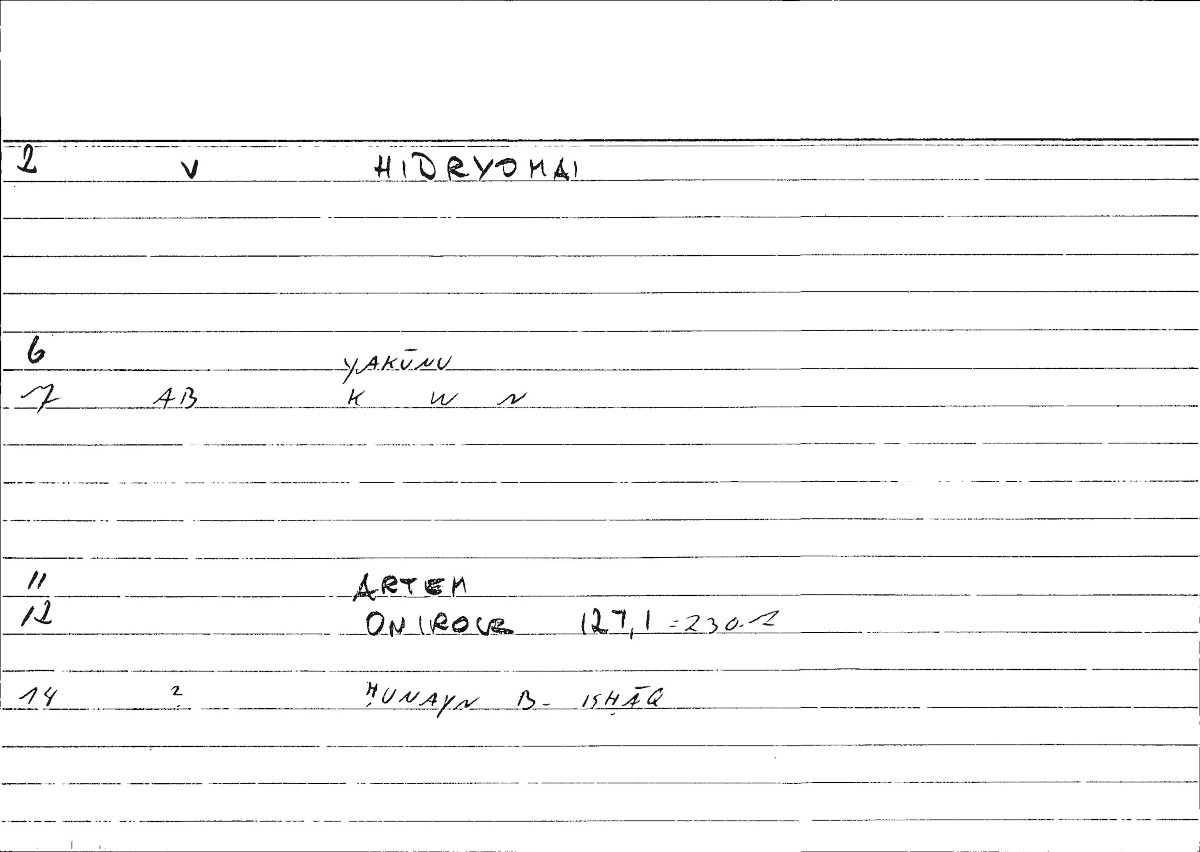 2 V HIDRYOMAI
6 YAKŪNU
7 AB K W N
11 ARTEM
12 ONIROCR 127,1 = 230.2
14 ? ḤUNAYN B. ISḤĀQ